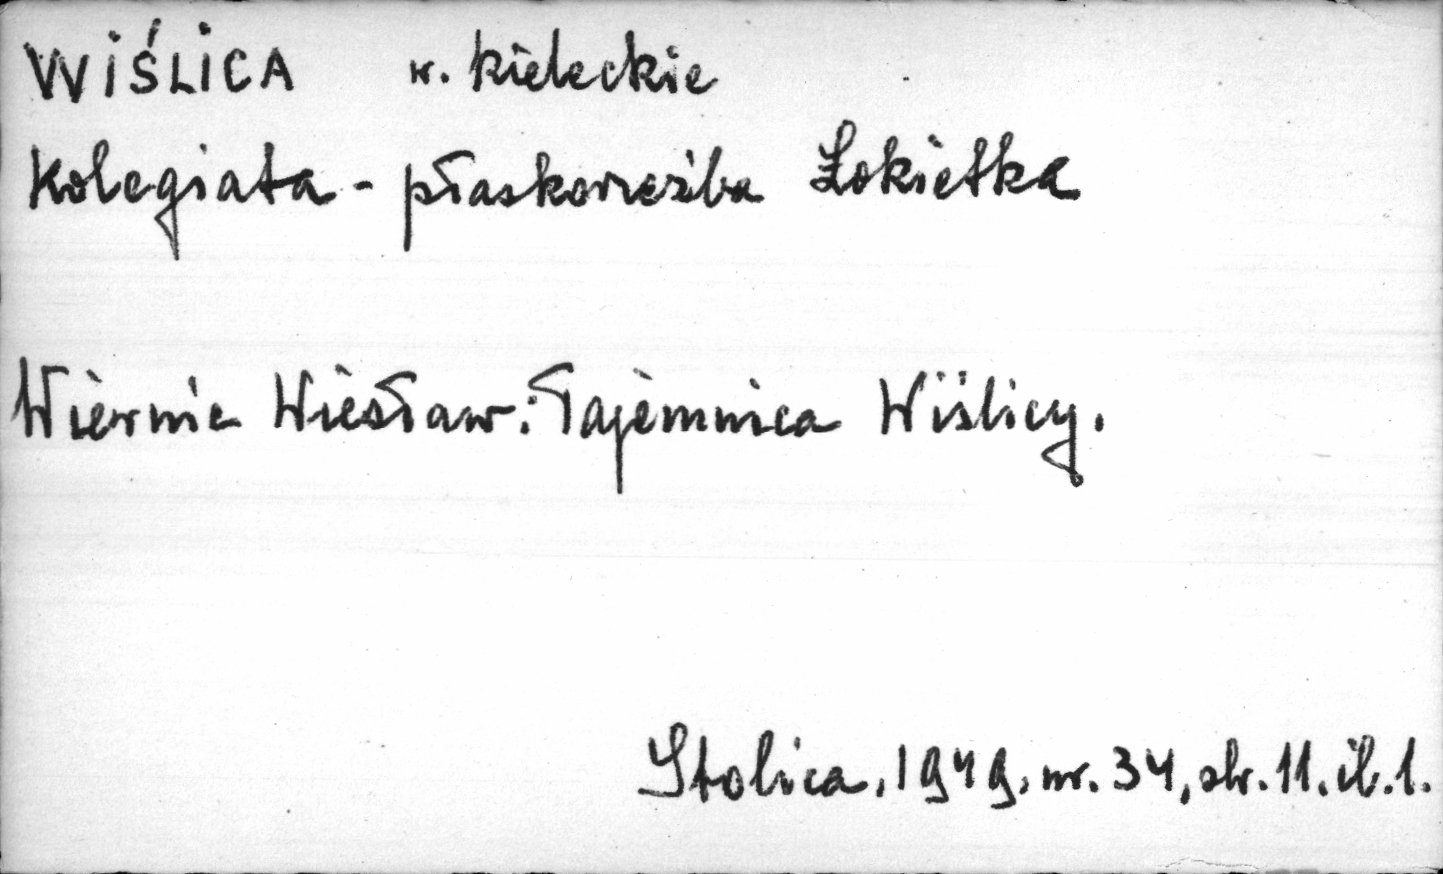 WIŚLICA w. kieleckie
Kolegiata - płaskorzeźba Łokietka
Wiernic Wiesław: Tajemnica Wiślicy.
Stolica, 1949, nr. 34, str. 11. il. 1.